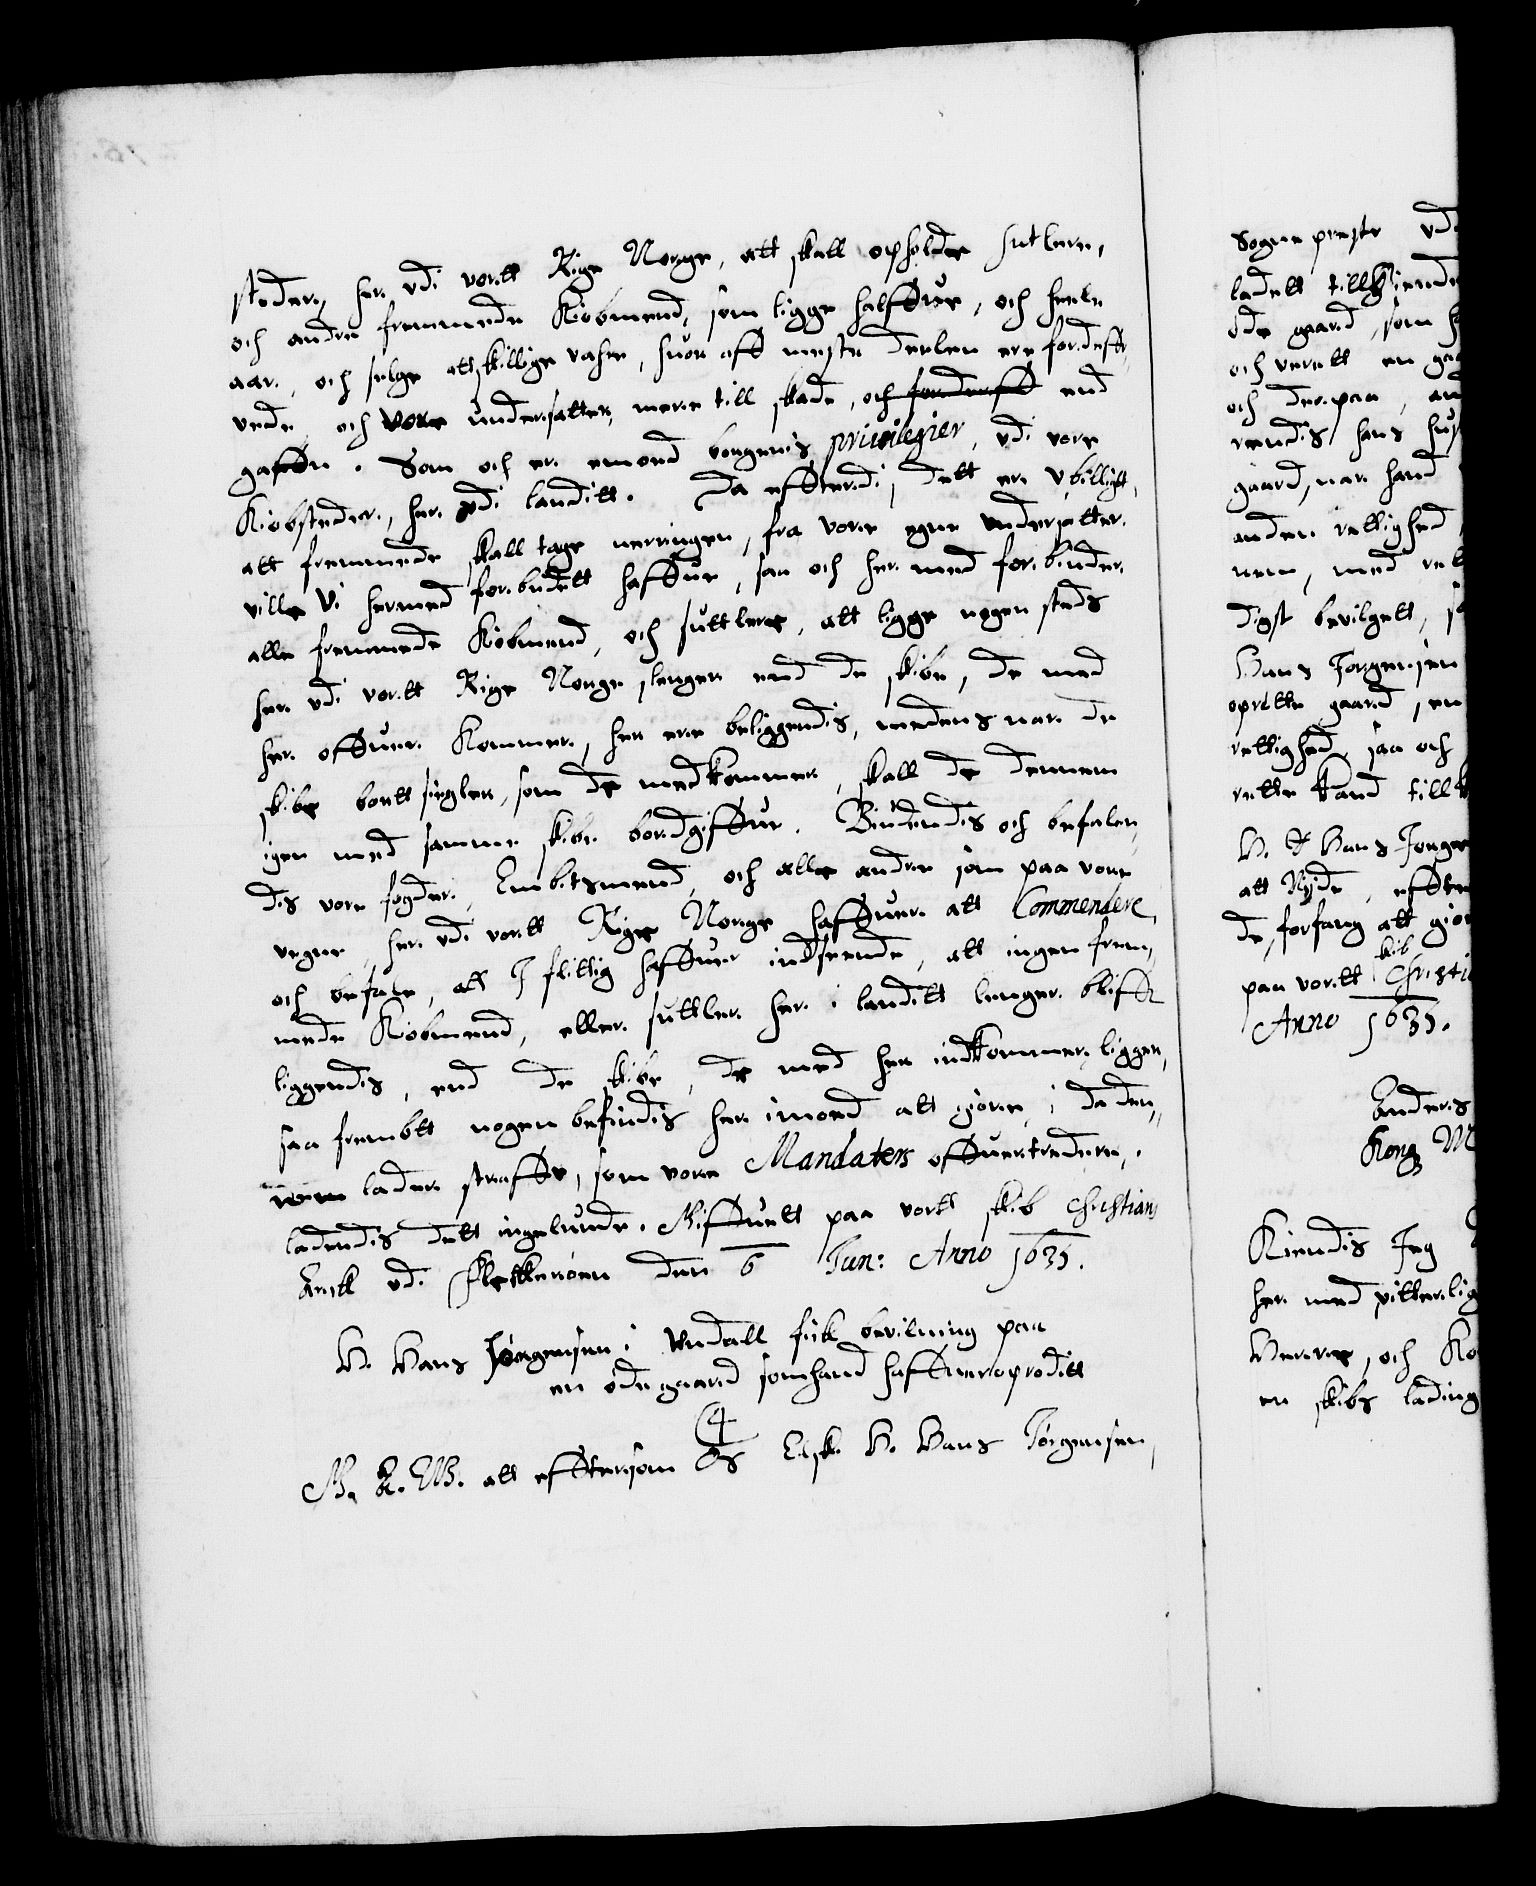 steder, her vdi vortt Rige Norge, att skall opholde sutlere,
och andre fremmede Kiøbmend, som ligge halffue, och heele
aar, och selge atskillige vahre, huor aff meste deelen ere fordeff-
uede, och vore undersatter, mere till skade, och forderfft end
gaffen. Som och er emoed borgernis privilegier, vdi vore
Kiøbsteder, her vdi landitt. Da effterdi, dett er vbilligt,
att fremmede skall tage neringen, fra vore egne undersatter.
ville Vi hermed forbudett haffue, saa och her med forbinder.
alle fremmede Kiøbmend, och suttlere, att ligge nogen steds
her vdi vortt Rige Norge lenger end de skibe, de med
her offuer Kommer, her ere beliggendis, medens nar de
skibe bortt siegler, som de medkommer, skall de dennem
igen med samme skibe bordgiffue. Biudendis och befalen-
dis vore fogder, Embitsmend, och alle andre som paa vore
vegne, her vdi vortt Rige Norge haffuer att Commendere,
och befale, att I flittig haffuer indseende, att ingen frem-
mede Kiøbmend, eller suttler her i landitt lenger bliffr
liggendis, end de skibe, de med her indkommer, ligger,
saa frembtt nogen befindis her imoed att giøre, i da den-
nem lader straffe, som vore Mandaters offuertredere,.
ladendis dett ingelunde. Giffuett paa vortt skib Christian
Anck vdi Fleckerøen den 6 Jun: Anno 1635.
H. Hans Jørgensen i Undall fick bevilning paa
en øde gaard som hand haffuer oprøditt
C4
G. A. W. att efftersom Os Elsk. H. Hans Jørgensen,
Sogne prest vdi
ladett tillkiende
øde gaard, som h
och verett en gaa
och der paa, an
vendis hans hus
gaard, nar hand
anden rettighed
nem, med rett
digst bevilgett, s
Hans Jørgensen
oprette gaard, en
rettighed, saa och
rette Kand till k
H. Hans Jørge
att Nyde, effte
de, forfang att giør
paa vortt skib Christi
Anno 1635.
Anders
Kong M
Kiendis Jeg
her med vitterlig
Herre, och Ko
en skibs lading